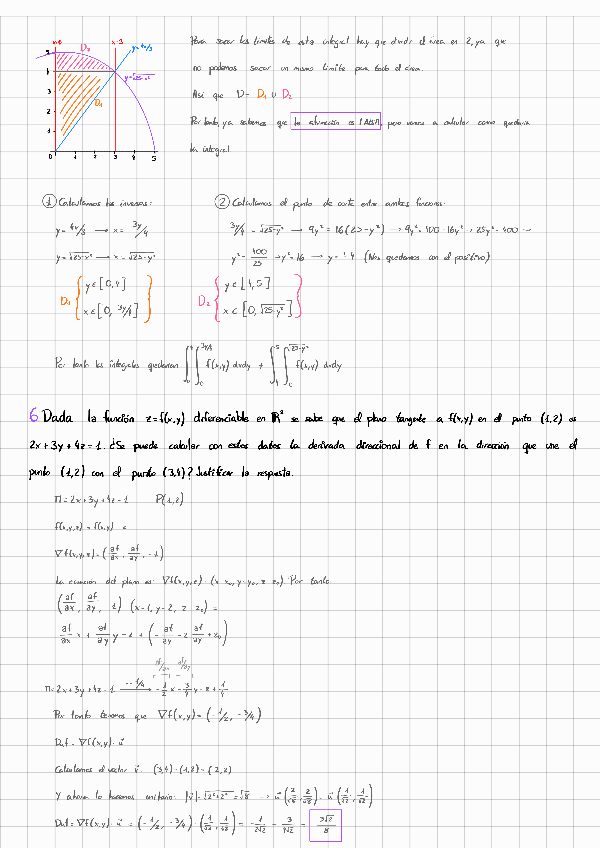 x=0
x=3
y=4x/3
D2
y=√25-x²
D1
5
4
3
2
1
0 1 2 3 4 5
Para sacar los límites de esta integral hay que dividir el área en 2, ya que
no podemos sacar un mismo límite para todo el área.
Así que D = D1 ∪ D2
Por tanto, ya sabemos que la afirmación es FALSA, pero vamos a calcular como quedaría
la integral
① Calculamos las inversas:
② Calculamos el punto de corte entre ambas funciones:
y = 4x/3 → x = 3y/4
3y/4 = √25-y² → 9y² = 16(25-y²) → 9y² = 400-16y² → 25y² = 400 →
y = √25-x² → x = √25-y²
y² = 400/25 → y² = 16 → y = ±4 (Nos quedamos con el positivo)
D1 { y ∈ [0,4]
x ∈ [0, 3y/4] }
D2 { y ∈ [4,5]
x ∈ [0, √25-y²] }
Por tanto las integrales quedarían ∫₀⁴ ∫₀^3y/4 f(x,y) dxdy + ∫₄⁵ ∫₀^√25-y² f(x,y) dxdy
6 Dada la función z=f(x,y) diferenciable en ℝ² se sabe que el plano tangente a f(x,y) en el punto (1,2) es
2x+3y+4z=1. ¿Se puede calcular con estos datos la derivada direccional de f en la dirección que une el
punto (1,2) con el punto (3,4)? Justificar la respuesta.
Π = 2x+3y+4z=1 P(1,2)
f(x,y,z) = f(x,y) - z
∇f(x,y,z) = (∂f/∂x, ∂f/∂y, -1)
La ecuación del plano es: ∇f(x,y,z) · (x-x₀, y-y₀, z-z₀) Por tanto
(∂f/∂x, ∂f/∂y, -1) · (x-1, y-2, z-z₀) =
∂f/∂x x + ∂f/∂y y - z + (-∂f/∂x - 2 ∂f/∂y + z₀)
∂f/∂x ∂f/∂y
Π = 2x+3y+4z=1 → · -1/4 → -1/2 x - 3/4 y - z + 1/4
Por tanto tenemos que ∇f(x,y) = (-1/2, -3/4)
Duf = ∇f(x,y) · u
Calculamos el vector v = (3,4) - (1,2) = (2,2)
Y ahora lo hacemos unitario: |v| = √2²+2² = √8 → u (2/√8, 2/√8) = u (1/√2, 1/√2)